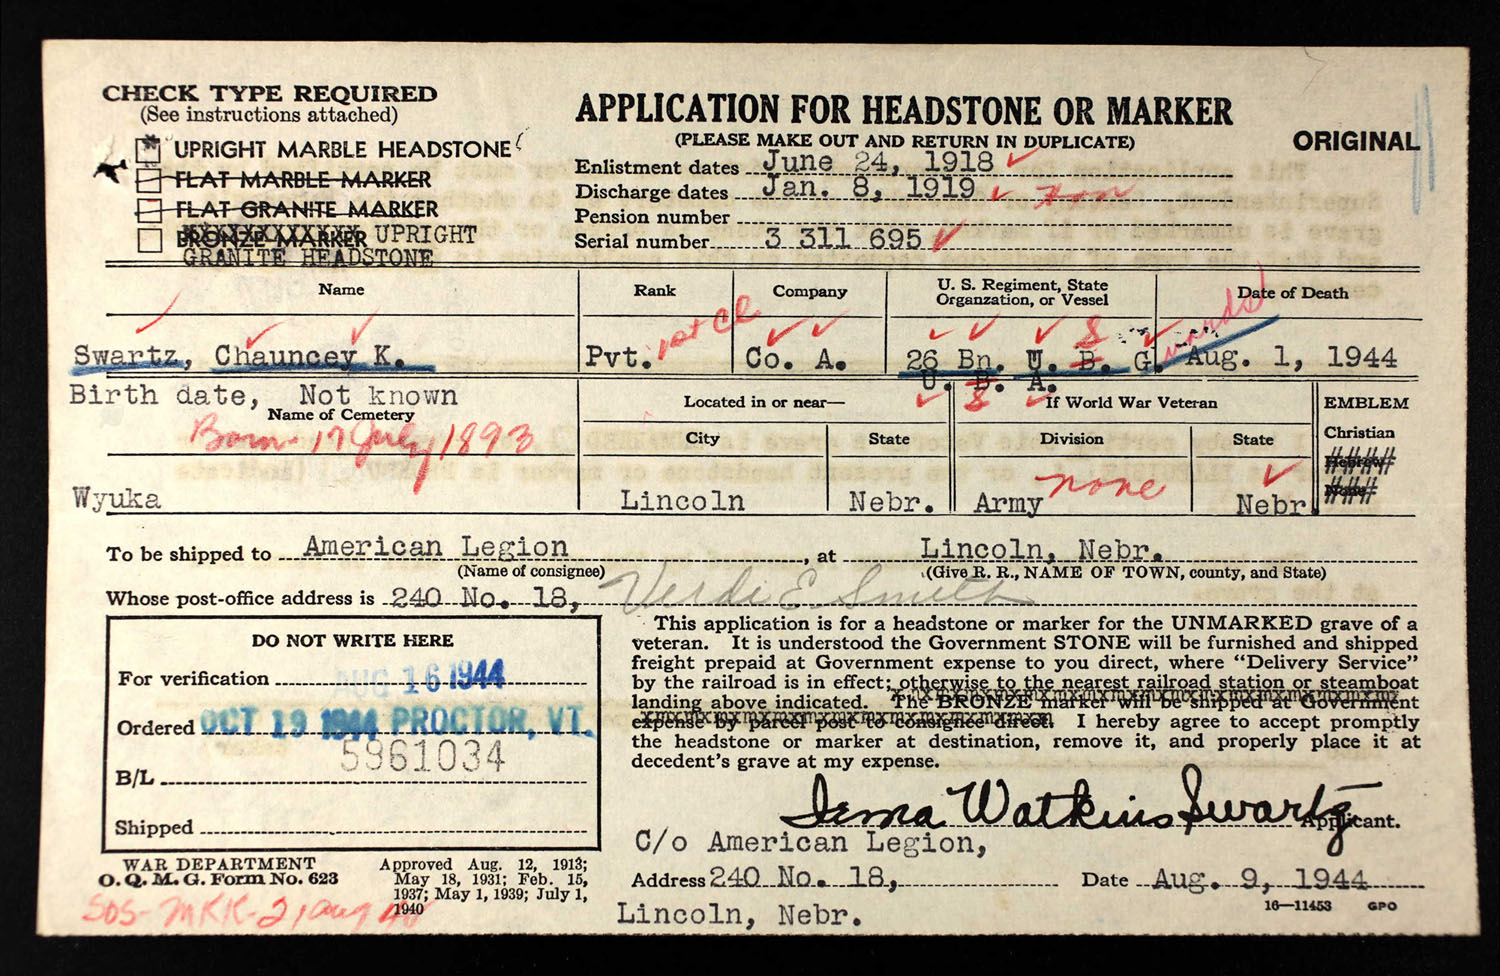 CHECK TYPE REQUIRED
(See instructions attached)
UPRIGHT MARBLE HEADSTONE
FLAT MARBLE MARKER
FLAT GRANITE MARKER
BRONZE MARKER UPRIGHT
GRANITE HEADSTONE
APPLICATION FOR HEADSTONE OR MARKER
(PLEASE MAKE OUT AND RETURN IN DUPLICATE)
ORIGINAL
Enlistment dates June 24, 1918
Discharge dates Jan. 8, 1919
Pension number
Serial number 3 311 695
Name
Rank
Company
U. S. Regiment, State
Organzation, or Vessel
Date of Death
Swartz, Chauncey K.
Pvt. 1st Cl
Co. A.
26 Bn. U. B. G. S
U. B. A. S
Aug. 1, 1944
Birth date, Not known
Name of Cemetery
Born 17 July 1893
Wyuka
Located in or near—
City
State
Lincoln
Nebr.
If World War Veteran
Division
State
Army none
Nebr.
EMBLEM
Christian
Hebrew
None
To be shipped to American Legion, at Lincoln, Nebr.
(Name of consignee)
(Give R. R., NAME OF TOWN, county, and State)
Whose post-office address is 240 No. 18, Verdi E. Smith
DO NOT WRITE HERE
For verification AUG 16 1944
Ordered OCT 19 1944 PROCTOR, VT.
5961034
B/L
Shipped
WAR DEPARTMENT
O. Q. M. G. Form No. 623
Approved Aug. 12, 1913;
May 18, 1931; Feb. 15,
1937; May 1, 1939; July 1,
1940
This application is for a headstone or marker for the UNMARKED grave of a
veteran. It is understood the Government STONE will be furnished and shipped
freight prepaid at Government expense to you direct, where “Delivery Service”
by the railroad is in effect; otherwise to the nearest railroad station or steamboat
landing above indicated. The BRONZE marker will be shipped at Government
expense by parcel post to consignee direct. I hereby agree to accept promptly
the headstone or marker at destination, remove it, and properly place it at
decedent's grave at my expense.
Irma Watkins Swartz
Applicant.
C/o American Legion,
Address 240 No. 18,
Lincoln, Nebr.
Date Aug. 9, 1944
16—11453 GPO